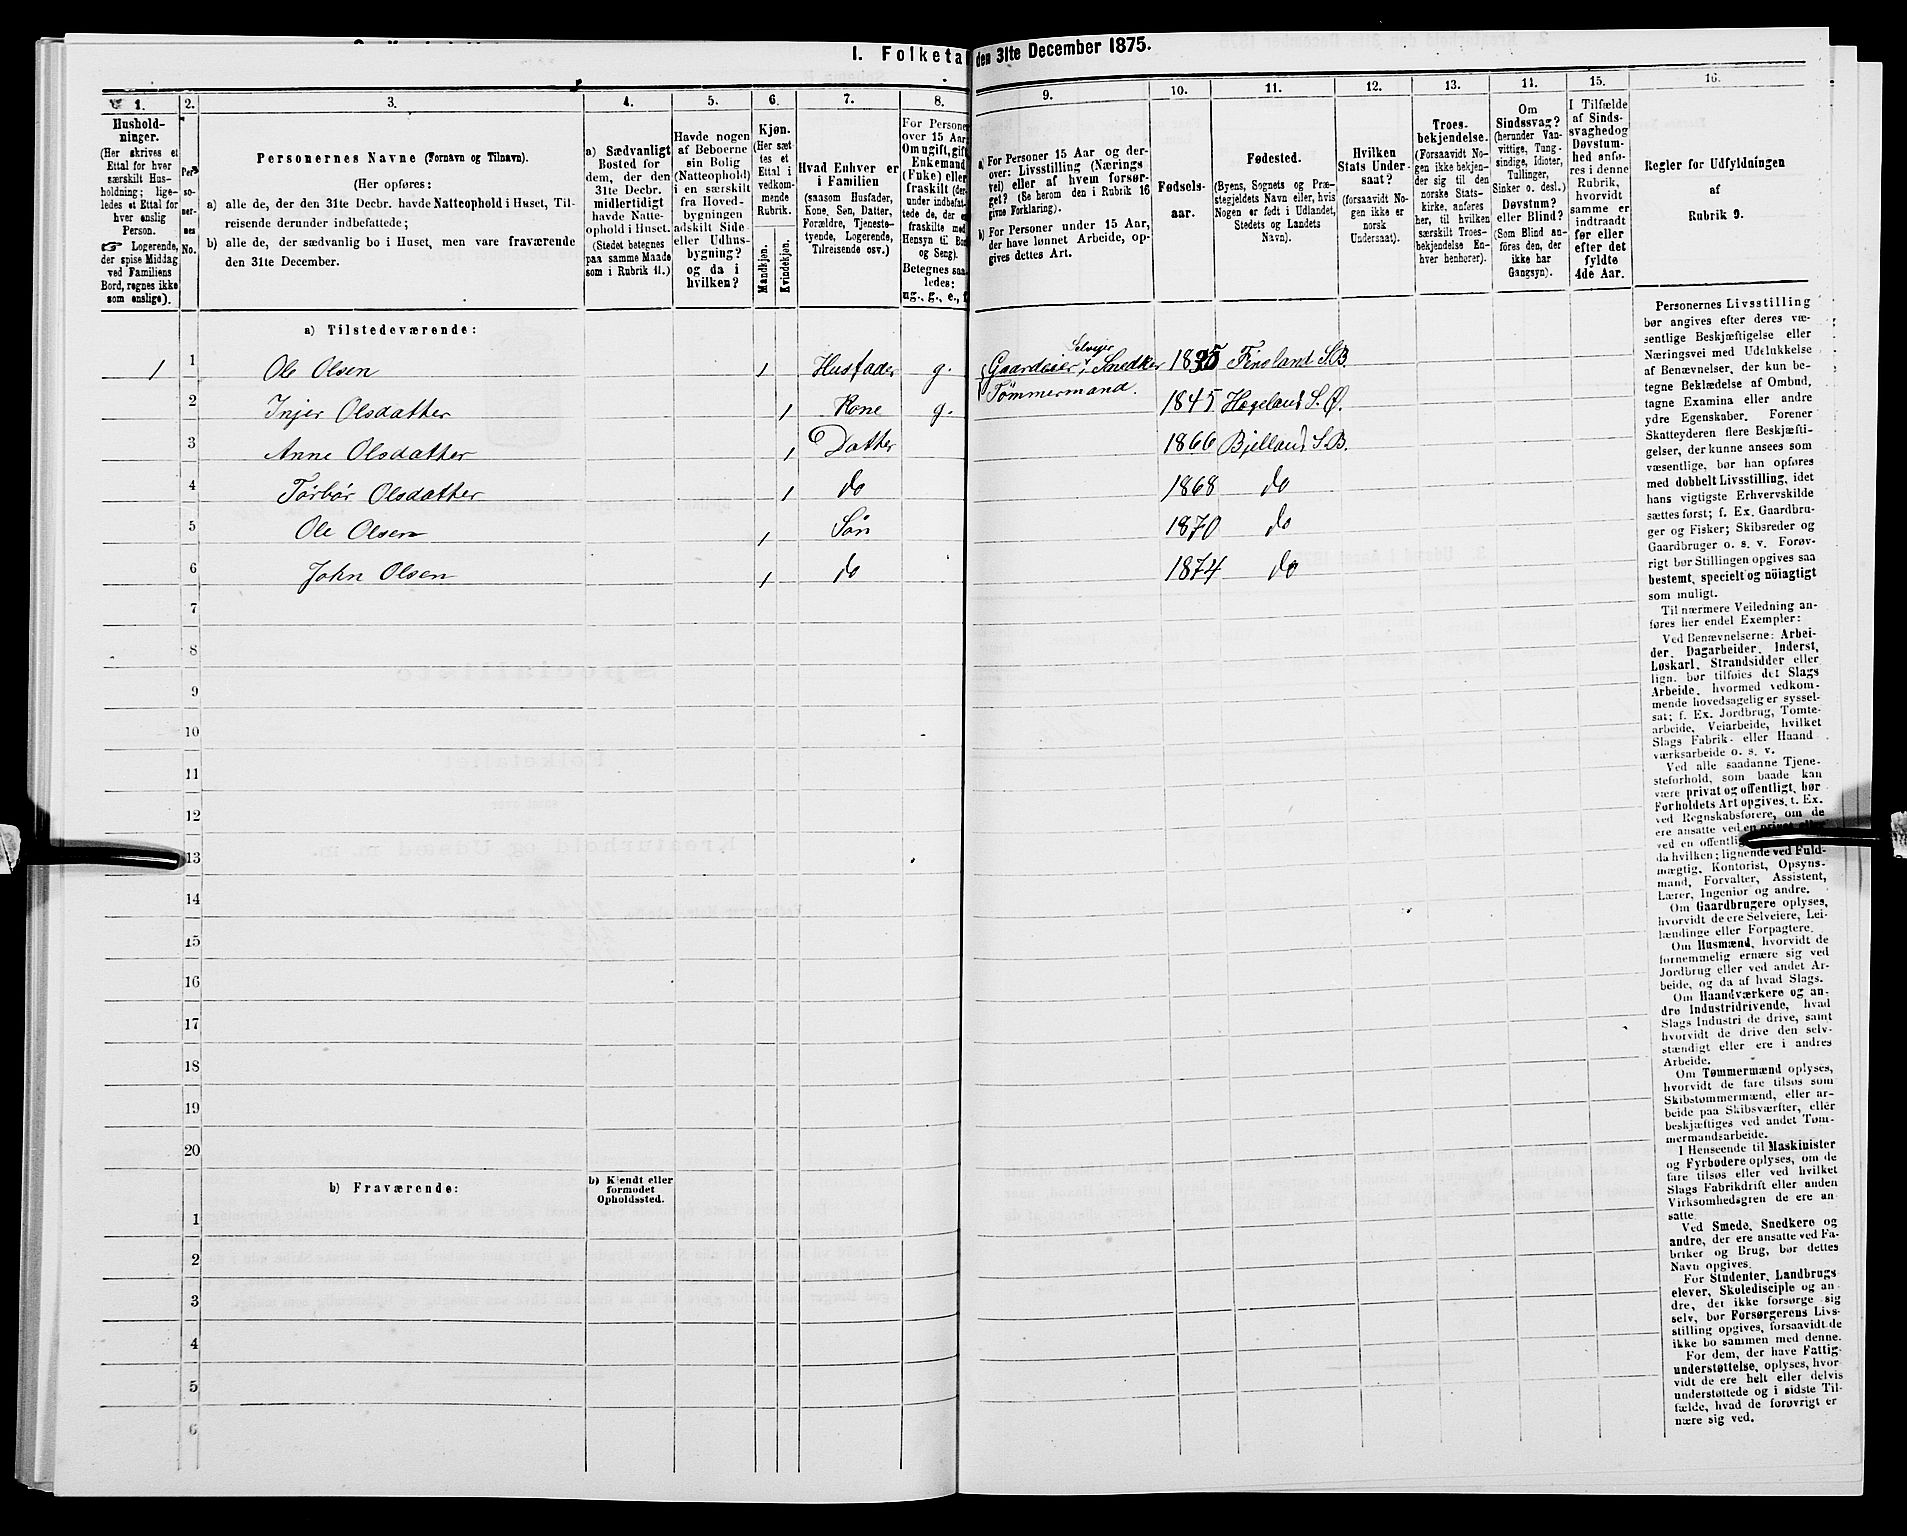 I. Folketa den 31te December 1875.
1. 2. 3. 4. 5. 6. 7. 8. 9. 10. 11. 12. 13. 14. 15. 16.
Hushold-
ninger.
(Her skrives et
Ettal for hver
særskilt Hus-
holdning; lige-
ledes et Ettal for
hver enslig
Person.
☞ Logerende,
der spise Middag
ved Familiens
Bord, regnes ikke
som enslige).
Per-
so-
ner-
nes
No.
Personernes Navne (Fornavn og Tilnavn).
(Her opføres:
a) alle de, der den 31te Decbr. havde Natteophold i Huset, Til-
reisende derunder indbefattede;
b) alle de, der sædvanlig bo i Huset, men vare fraværende
den 31te December.
a) Sædvanligt
Bosted for
dem, der den
31te Decbr.
midlertidigt
havde Natte-
ophold i Huset.
(Stedet betegnes
paa samme Maade
som i Rubrik 11.)
Havde nogen
af Beboerne
sin Bolig
(Natteophold)
i en særskilt
fra Hoved-
bygningen
adskilt Side
eller Udhus-
bygning?
og da i
hvilken?
Kjøn.
(Her sæt-
tes et
Ettal i
vedkom-
mende
Rubrik.
Mandkjøn.
Kvindekjøn.
Hvad Enhver er
i Familien
(saasom Husfader,
Kone, Søn, Datter,
Forældre, Tjeneste-
tyende, Logerende,
Tilreisende osv.)
For Personer
over 15 Aar:
Om ugift, gift,
Enkemand
(Enke) eller
fraskilt (der-
under indbefat-
tede de, der ere
fraskilte med
Hensyn til Bord
og Seng).
Betegnes saa-
ledes:
ug., g., e., f.
a) For Personer 15 Aar og der-
over: Livsstilling (Nærings-
vei) eller af hvem forsør-
get? (Se herom den i Rubrik 16
givne Forklaring).
b) For Personer under 15 Aar,
der have lønnet Arbeide, op-
gives dettes Art.
Fødsels-
aar.
Fødested.
(Byens, Sognets og Præ-
stegjeldets Navn eller, hvis
Nogen er født i Udlandet,
Stedets og Landets
Navn).
Hvilken
Stats Under-
saat?
(forsaavidt No-
gen ikke er
norsk
Undersaat).
Troes-
bekjendelse.
(Forsaavidt No-
gen ikke bekjen-
der sig til den
norske Stats-
kirke, anføres
her, til hvilken
særskilt Troes-
bekjendelse En-
hver henhører).
Om
Sindssvag?
(herunder Van-
vittige, Tung-
sindige, Idioter,
Tullinger,
Sinker o. desl.)
Døvstum?
eller Blind?
(Som Blind an-
føres den, der
ikke har
Gangsyn).
I Tilfælde
af Sinds-
svaghed og
Døvstum-
hed anfø-
res i denne
Rubrik,
hvorvidt
samme er
indtraadt
før eller
efter det
fyldte
4de Aar.
Regler for Udfyldningen
af
Rubrik 9.
a) Tilstedeværende:
1 1 Ole Olsen 1 Husfader g. Gaardeier, Selveier Snedker 1835 Finsland S.B.
Tømmermand.
2 Injer Olsdatter 1 Kone g. 1845 Hægeland S. Ø.
3 Anne Olsdatter 1 Datter 1866 Bjelland S.B.
4 Tørbør Olsdatter 1 do 1868 do
5 Ole Olsen 1 Søn 1870 do
6 John Olsen 1 do 1874 do
7
8
9
10
11
12
13
14
15
16
17
18
19
20
b) Fraværende:
b) Kjendt eller
formodet
Opholdssted.
1
2
3
4
5
6
Personernes Livsstilling
bør angives efter deres væ-
sentlige Beskjæftigelse eller
Næringsvei med Udelukkelse
af Benævnelser, der kun be-
tegne Beklædelse af Ombud,
tagne Examina eller andre
ydre Egenskaber. Forener
Skatteyderen flere Beskjæfti-
gelser, der kunne ansees som
væsentlige, bør han opføres
med dobbelt Livsstilling, idet
hans vigtigste Erhvervskilde
sættes først; f. Ex. Gaardbru-
ger og Fisker; Skibsreder og
Gaardbruger o. s. v. Forøv-
rigt bør Stillingen opgives saa
bestemt, specielt og nöiagtigt
som muligt.
Til nærmere Veiledning an-
føres her endel Exempler:
Ved Benævnelserne: Arbei-
der, Dagarbeider, Inderst,
Løskarl, Strandsidder eller
lign. bør tilføies det Slags
Arbeide, hvormed vedkom-
mende hovedsagelig er syssel-
sat; f. Ex. Jordbrug, Tomte-
arbeide, Veiarbeide, hvilket
Slags Fabrik- eller Haand
værksarbeide o. s. v.
Ved alle saadanne Tjene-
steforhold, som baade kan
være privat og offentligt, bør
Forholdets Art opgives, t. Ex.
ved Regnskabsførere, om de
ere ansatte ved en privat eller
ved en offentlig
da hvilken; lignende ved Fuld-
mægtig, Kontorist, Opsyns-
mand, Forvalter, Assistent,
Lærer, Ingeniør og andre.
Om Gaardbrugere oplyses,
hvorvidt de ere Selveiere, Lei-
lændinge eller Forpagtere.
Om Husmænd, hvorvidt de
fornemmelig ernære sig ved
Jordbrug eller ved andet Ar-
beide, og da af hvad Slags.
Om Haandværkere og an-
dre Industridrivende, hvad
Slags Industri de drive, samt
hvorvidt de drive den selv-
stændigt eller ere i andres
Arbeide.
Om Tømmermænd oplyses,
hvorvidt de fare tilsøs som
Skibstømmermænd, eller ar-
beide paa Skibsværfter, eller
beskjæftiges ved andet Tøm-
mermandsarbeide.
I Henseende til Maskinister
og Fyrbødere oplyses, om de
fare tilsøs eller ved hvilket
Slags Fabrikdrift eller anden
Virksomhedsgren de ere an
satte.
Ved Smede, Snedkere og
andre, der ere ansatte ved Fa-
briker og Brug, bør dettes
Navn opgives.
For Studenter, Landbrugs
elever, Skoledisciple og an-
dre, der ikke forsørge sig
selv, bør Forsørgerens Livs-
stilling opgives, forsaavidt de
ikke bo sammen med denne.
For dem, der have Fattig-
understøttelse, oplyses, hvor-
vidt de ere helt eller delvis
understøttede og i sidste Til-
fælde, hvad de forøvrigt er
nære sig ved.